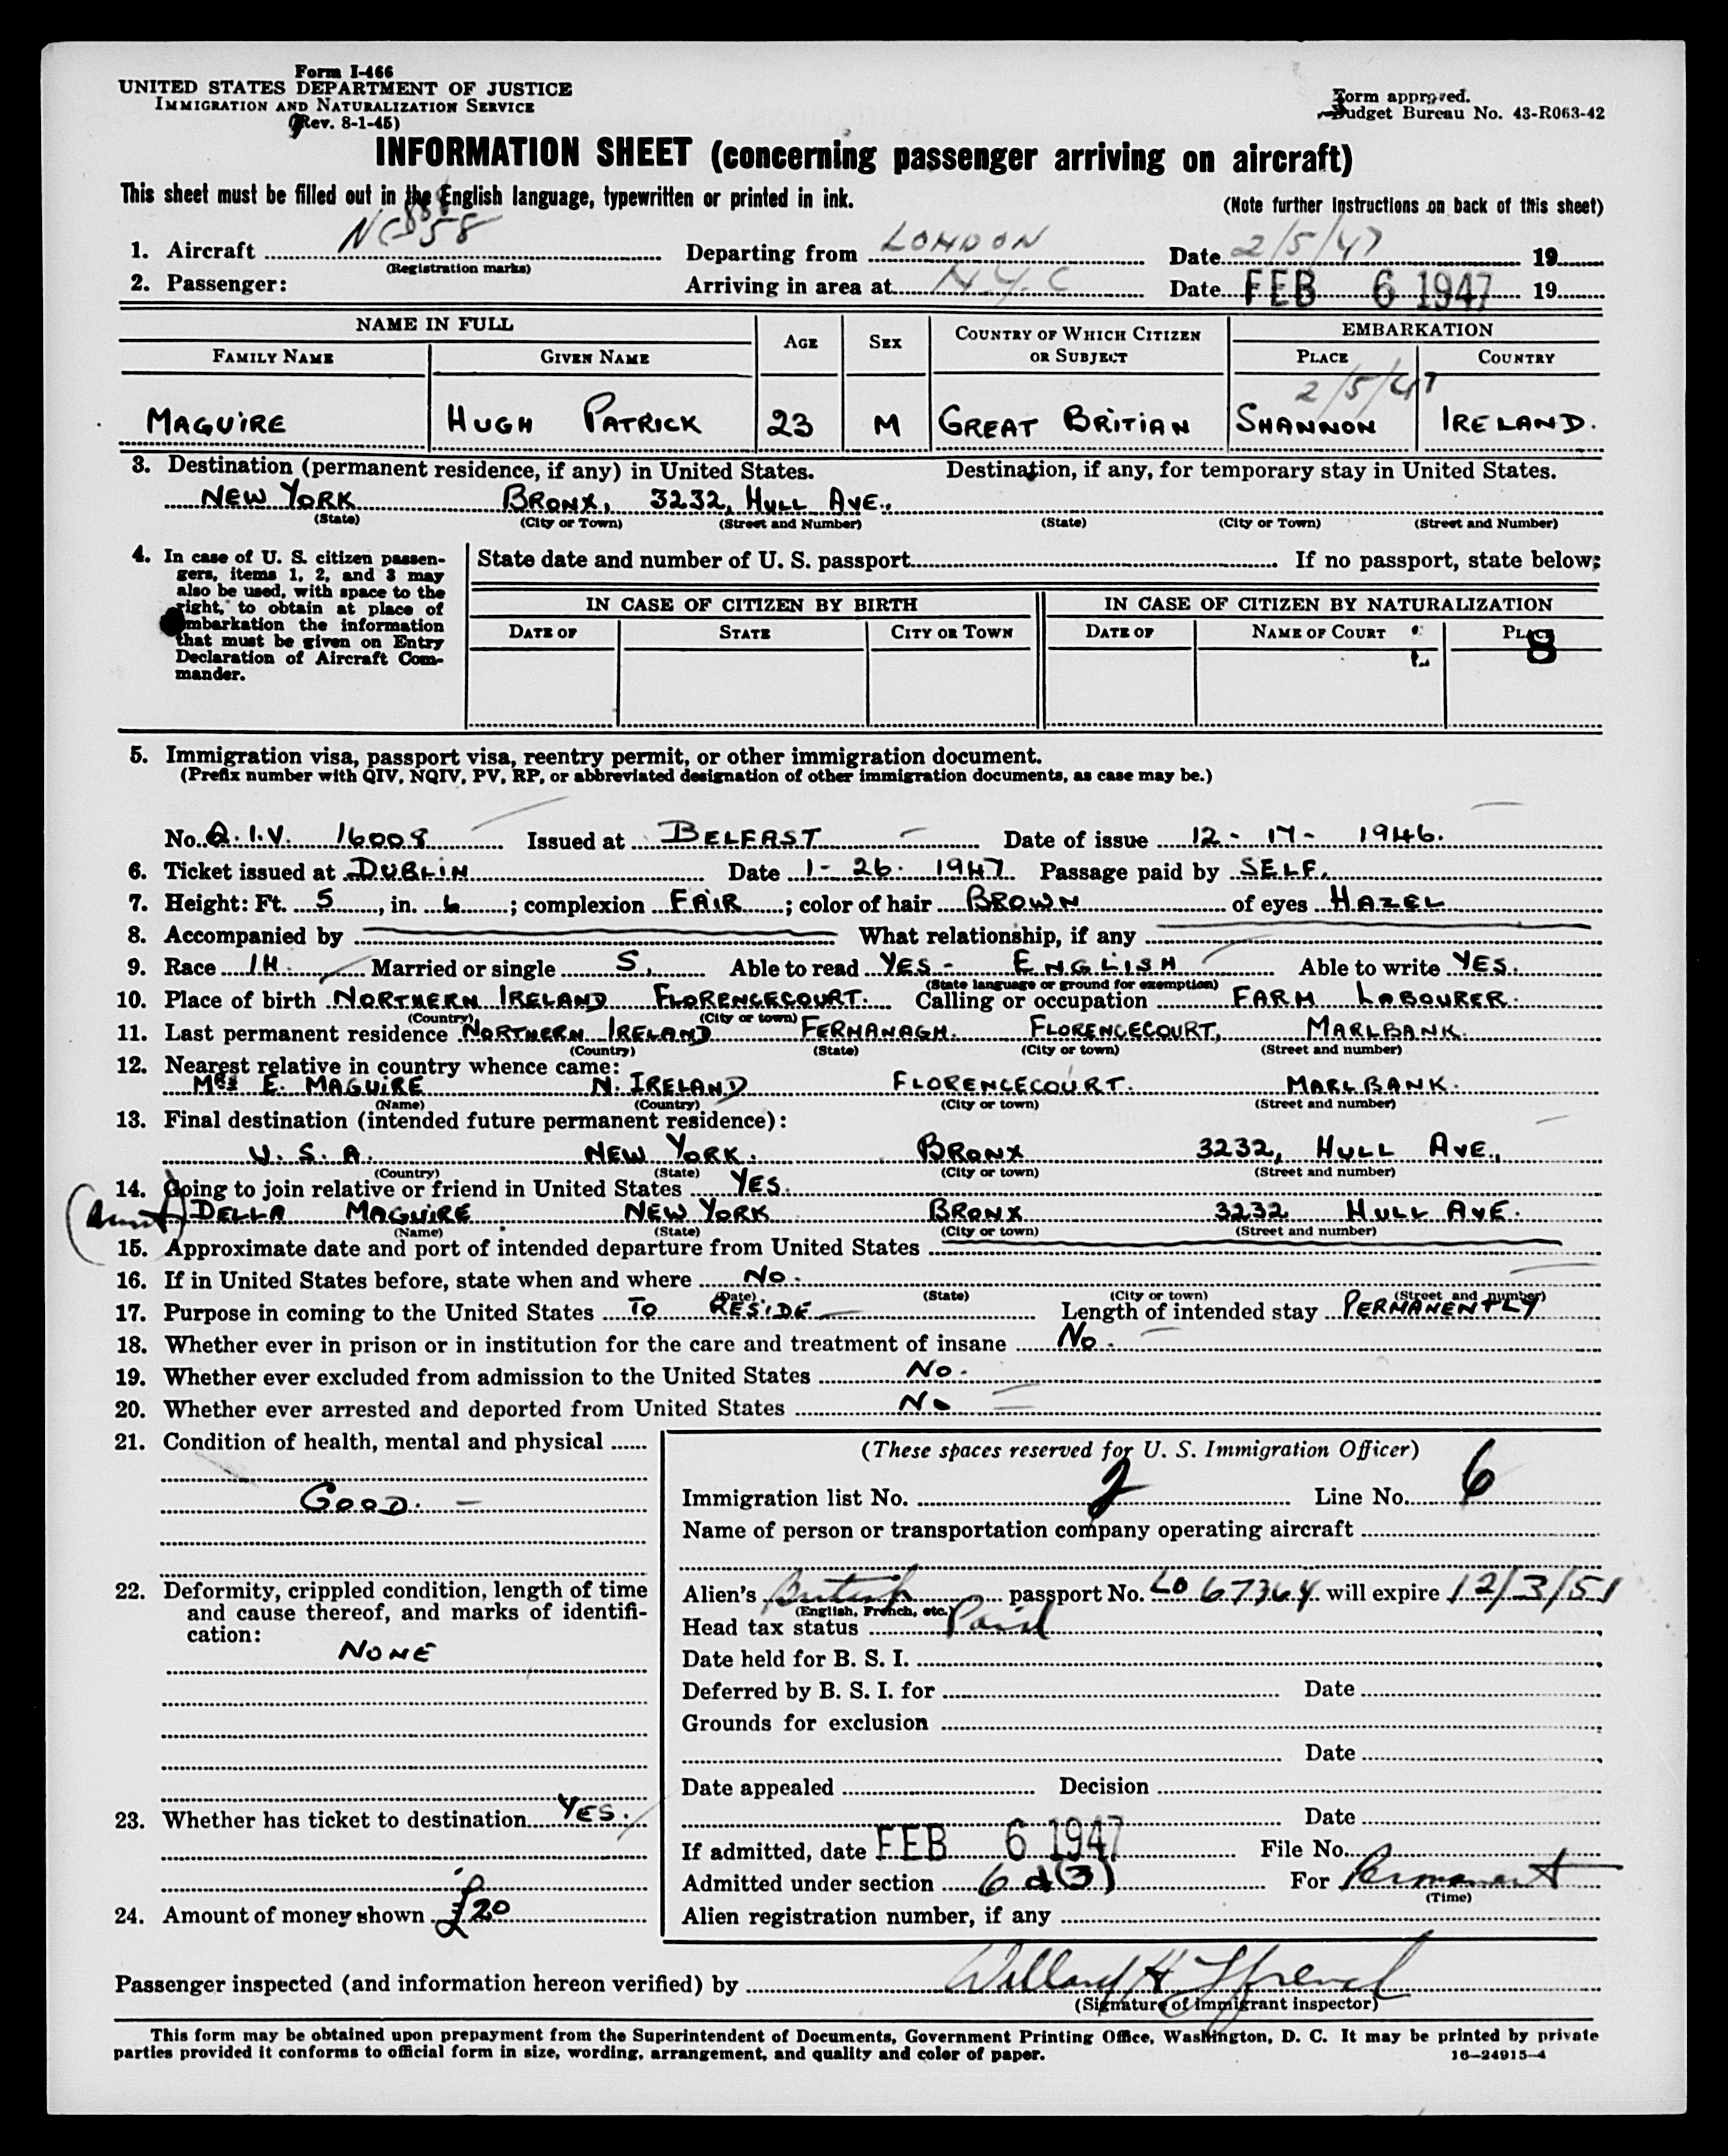 Form I-466
UNITED STATES DEPARTMENT OF JUSTICE
IMMIGRATION AND NATURALIZATION SERVICE
(Rev. 8-1-45)
Form approved.
Budget Bureau No. 43-R063-42
INFORMATION SHEET (concerning passenger arriving on aircraft)
This sheet must be filled out in the English language, typewritten or printed in ink.
(Note further instructions on back of this sheet)
1. Aircraft Departing from LONDON Date 2/5/47 19
(Registration marks)
2. Passenger: Arriving in area at N.Y.C Date FEB 6 1947 19
NAME IN FULL AGE SEX COUNTRY OF WHICH CITIZEN OR SUBJECT EMBARKATION
FAMILY NAME GIVEN NAME PLACE COUNTRY
2/5/47
MAGUIRE HUGH PATRICK 23 M GREAT BRITIAN SHANNON IRELAND.
3. Destination (permanent residence, if any) in United States. Destination, if any, for temporary stay in United States.
NEW YORK BRONX, 3232, HULL AVE.,
(State) (City or Town) (Street and Number) (State) (City or Town) (Street and Number)
4. In case of U. S. citizen passengers, items 1, 2, and 3 may also be used, with space to the right, to obtain at place of embarkation the information that must be given on Entry Declaration of Aircraft Commander.
State date and number of U. S. passport If no passport, state below:
IN CASE OF CITIZEN BY BIRTH IN CASE OF CITIZEN BY NATURALIZATION
DATE OF STATE CITY OR TOWN DATE OF NAME OF COURT PLACE
8
5. Immigration visa, passport visa, reentry permit, or other immigration document.
(Prefix number with QIV, NQIV, PV, RP, or abbreviated designation of other immigration documents, as case may be.)
No. Q.I.V. 16008 Issued at BELFAST Date of issue 12 - 17 - 1946.
6. Ticket issued at DUBLIN Date 1 - 26. 1947 Passage paid by SELF.
7. Height: Ft. 5, in. 6; complexion FAIR; color of hair BROWN of eyes HAZEL
8. Accompanied by What relationship, if any
9. Race IH. Married or single S. Able to read YES - ENGLISH Able to write YES.
(State language or ground for exemption)
10. Place of birth NORTHERN IRELAND FLORENCECOURT. Calling or occupation FARM LABOURER.
(Country) (City or town)
11. Last permanent residence NORTHERN IRELAND FERMANAGH. FLORENCECOURT, MARLBANK.
(Country) (State) (City or town) (Street and number)
12. Nearest relative in country whence came:
MRS E. MAGUIRE N. IRELAND FLORENCECOURT. MARLBANK.
(Name) (Country) (City or town) (Street and number)
13. Final destination (intended future permanent residence):
U. S. A. NEW YORK. BRONX 3232, HULL AVE.,
(Country) (State) (City or town) (Street and number)
14. Going to join relative or friend in United States YES.
(Aunt) DELLA MAGUIRE NEW YORK BRONX 3232 HULL AVE.
(Name) (State) (City or town) (Street and number)
15. Approximate date and port of intended departure from United States
16. If in United States before, state when and where No.
(Date) (State) (City or town) (Street and number)
17. Purpose in coming to the United States TO RESIDE Length of intended stay PERMANENTLY
18. Whether ever in prison or in institution for the care and treatment of insane No.
19. Whether ever excluded from admission to the United States No.
20. Whether ever arrested and deported from United States No
21. Condition of health, mental and physical
GOOD.
22. Deformity, crippled condition, length of time and cause thereof, and marks of identification:
NONE
23. Whether has ticket to destination YES.
24. Amount of money shown £20
(These spaces reserved for U. S. Immigration Officer)
Immigration list No. 2 Line No. 6
Name of person or transportation company operating aircraft
Alien's British passport No. LO 67364 will expire 12/3/51
(English, French, etc.)
Head tax status Paid
Date held for B. S. I.
Deferred by B. S. I. for Date
Grounds for exclusion
Date
Date appealed Decision
Date
If admitted, date FEB 6 1947 File No.
Admitted under section 6 d(3) For Permanent
(Time)
Alien registration number, if any
Passenger inspected (and information hereon verified) by Willard H
(Signature of immigrant inspector)
This form may be obtained upon prepayment from the Superintendent of Documents, Government Printing Office, Washington, D. C. It may be printed by private
parties provided it conforms to official form in size, wording, arrangement, and quality and color of paper.
16—24915-4